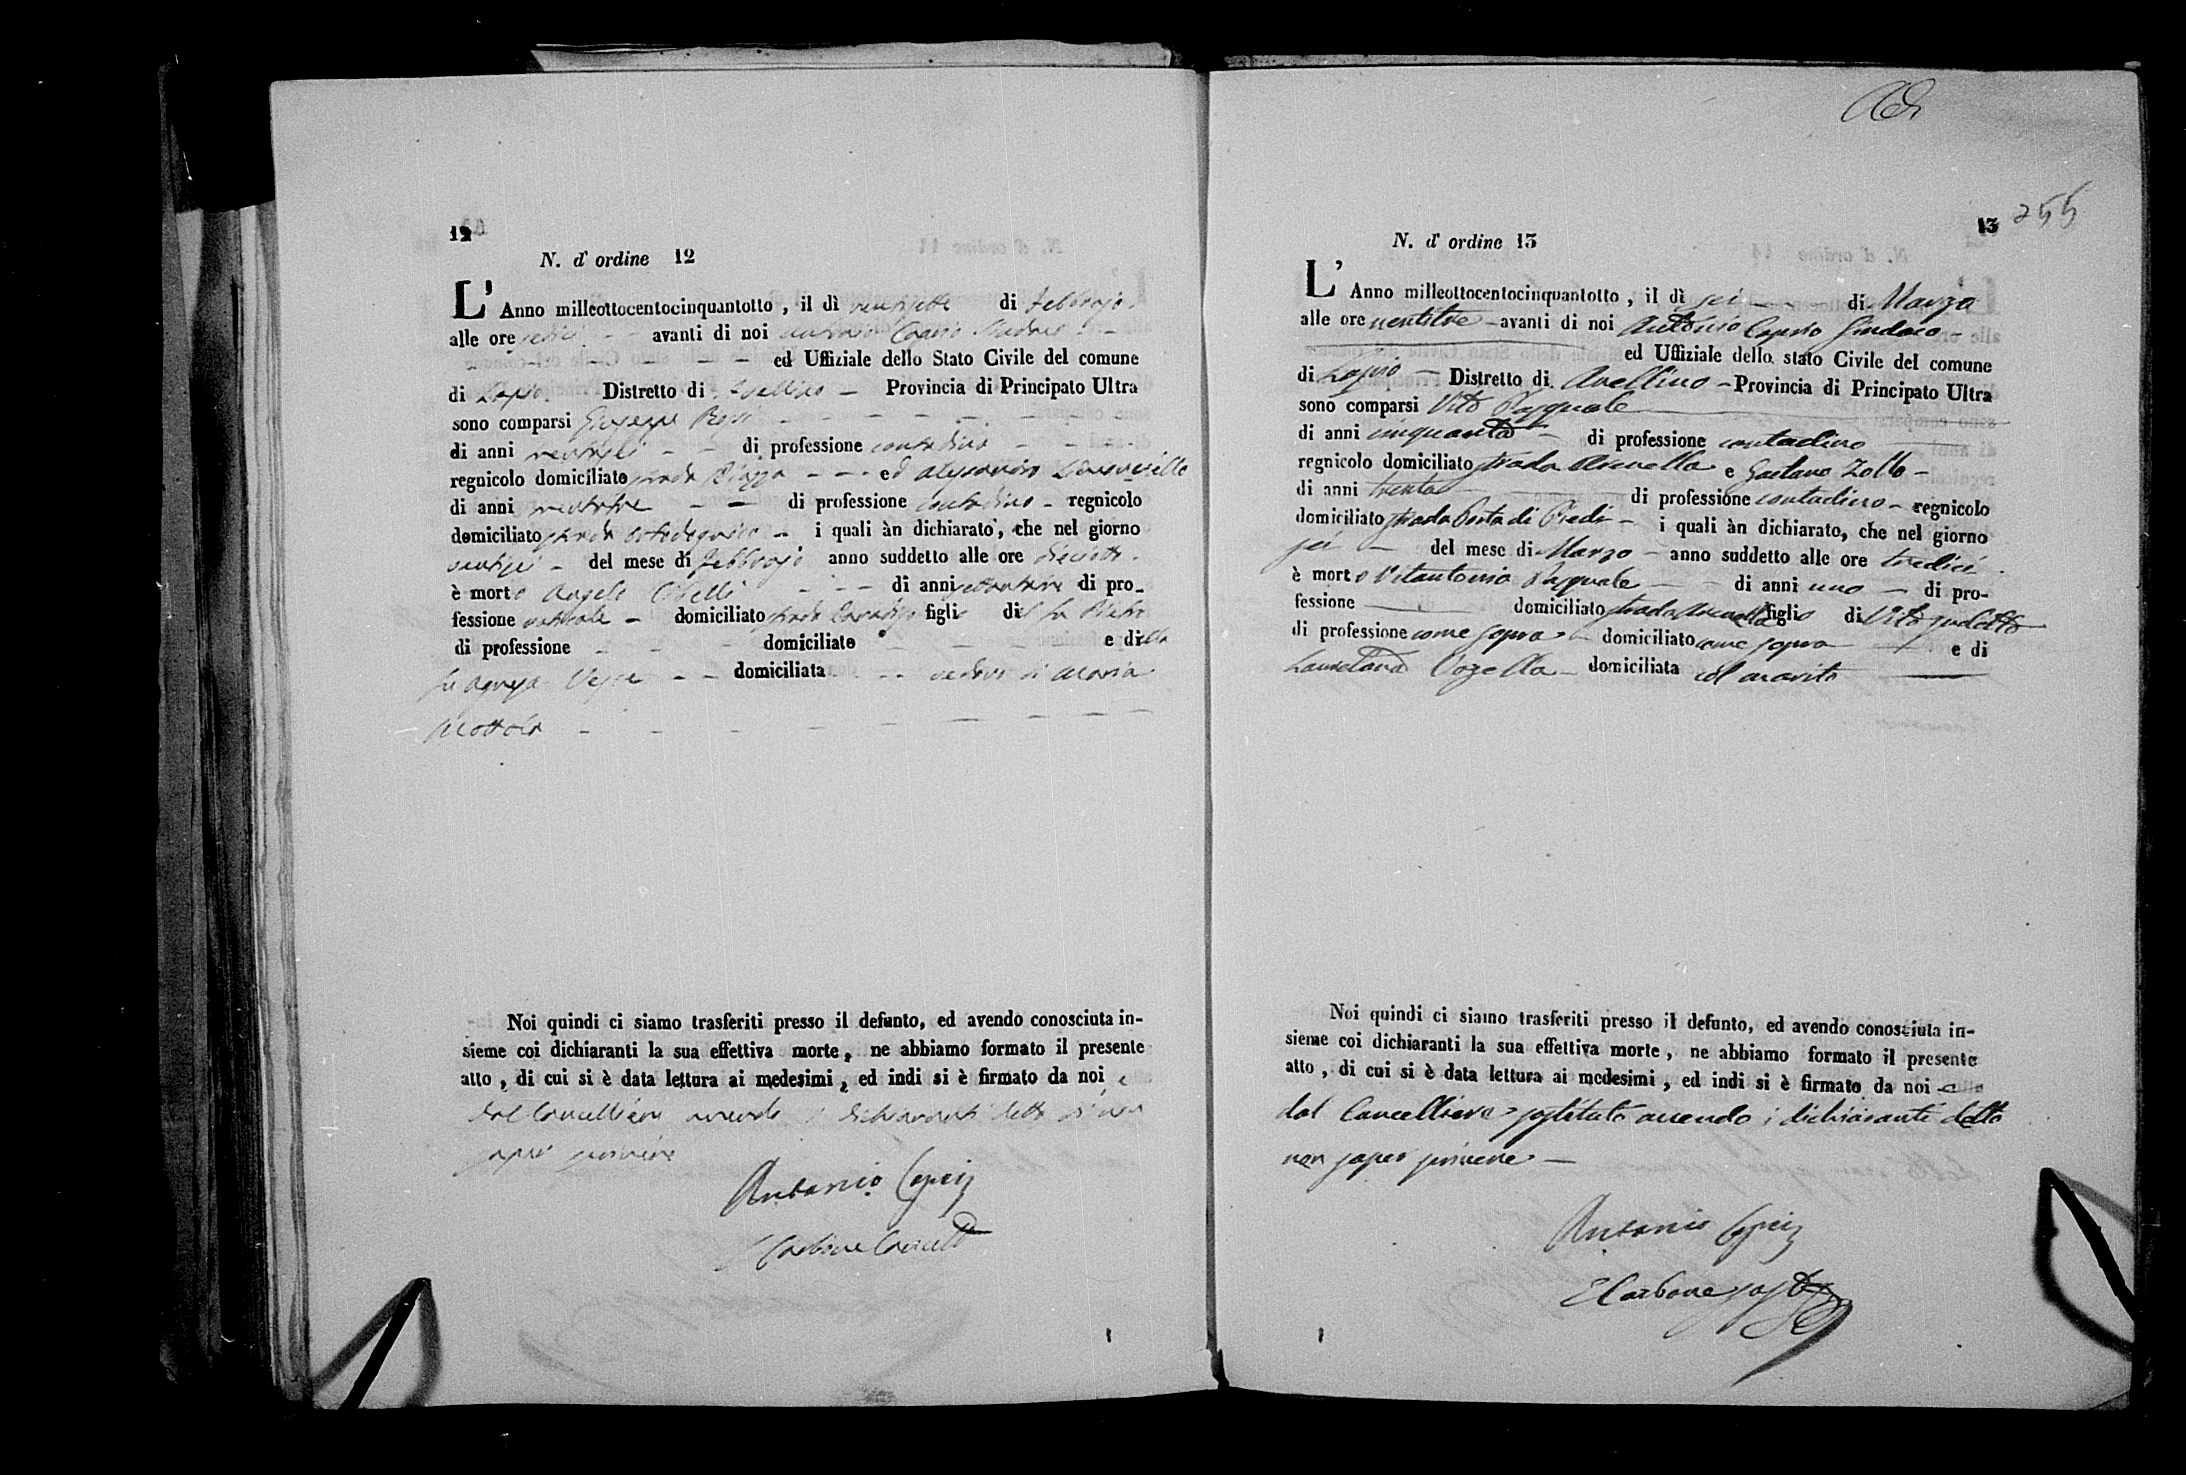 12
N. d' ordine 12
L'Anno milleottocentocinquantotto, il dì ventisette di Febbrajo
alle ore sedici avanti di noi Antonio Caprio Sindaco
ed Uffiziale dello Stato Civile del comune
di Lapio Distretto di Avellino Provincia di Principato Ultra
sono comparsi Giuseppe
di anni di professione contadino
regnicolo domiciliato strada Piazza ed Alessandro
di anni di professione contadino regnicolo
domiciliato strada i quali àn dichiarato, che nel giorno
ventisei del mese di Febbrajo anno suddetto alle ore
è morto Angelo di anni di pro-
fessione domiciliato strada figlio del fu Pietro
di professione domiciliato e di
fu domiciliata vedovo di Maria

Noi quindi ci siamo trasferiti presso il defunto, ed avendo conosciuta in-
sieme coi dichiaranti la sua effettiva morte, ne abbiamo formato il presente
atto, di cui si è data lettura ai medesimi, ed indi si è firmato da noi e
dal Cancelliere avendo i dichiaranti detto di non
saper scrivere
Antonio Caprio
Carbone
255
13
N. d' ordine 13
L'Anno milleottocentocinquantotto, il dì sei di Marzo
alle ore ventitre avanti di noi Antonio Caprio Sindaco
ed Uffiziale dello stato Civile del comune
di Lapio Distretto di Avellino Provincia di Principato Ultra
sono comparsi Vito Pasquale
di anni cinquanta di professione contadino
regnicolo domiciliato strada e Gaetano Zollo
di anni trenta di professione contadino regnicolo
domiciliato strada Porta di Piedi i quali àn dichiarato, che nel giorno
sei del mese di Marzo anno suddetto alle ore tredici
è morto Vitantonio Pasquale di anni uno di pro-
fessione domiciliato strada figlio di Vito sudetto
di professione come sopra domiciliato come sopra e di
domiciliata col marito
Noi quindi ci siamo trasferiti presso il defunto, ed avendo conosciuta in-
sieme coi dichiaranti la sua effettiva morte, ne abbiamo formato il presente
atto, di cui si è data lettura ai medesimi, ed indi si è firmato da noi e
dal Cancelliere sostituto avendo i dichiaranti detto
non saper scrivere
Antonio Caprio
E Carbone sostto